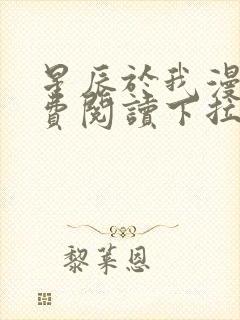 星辰於我漫
費閱讀下拉
黎萊恩